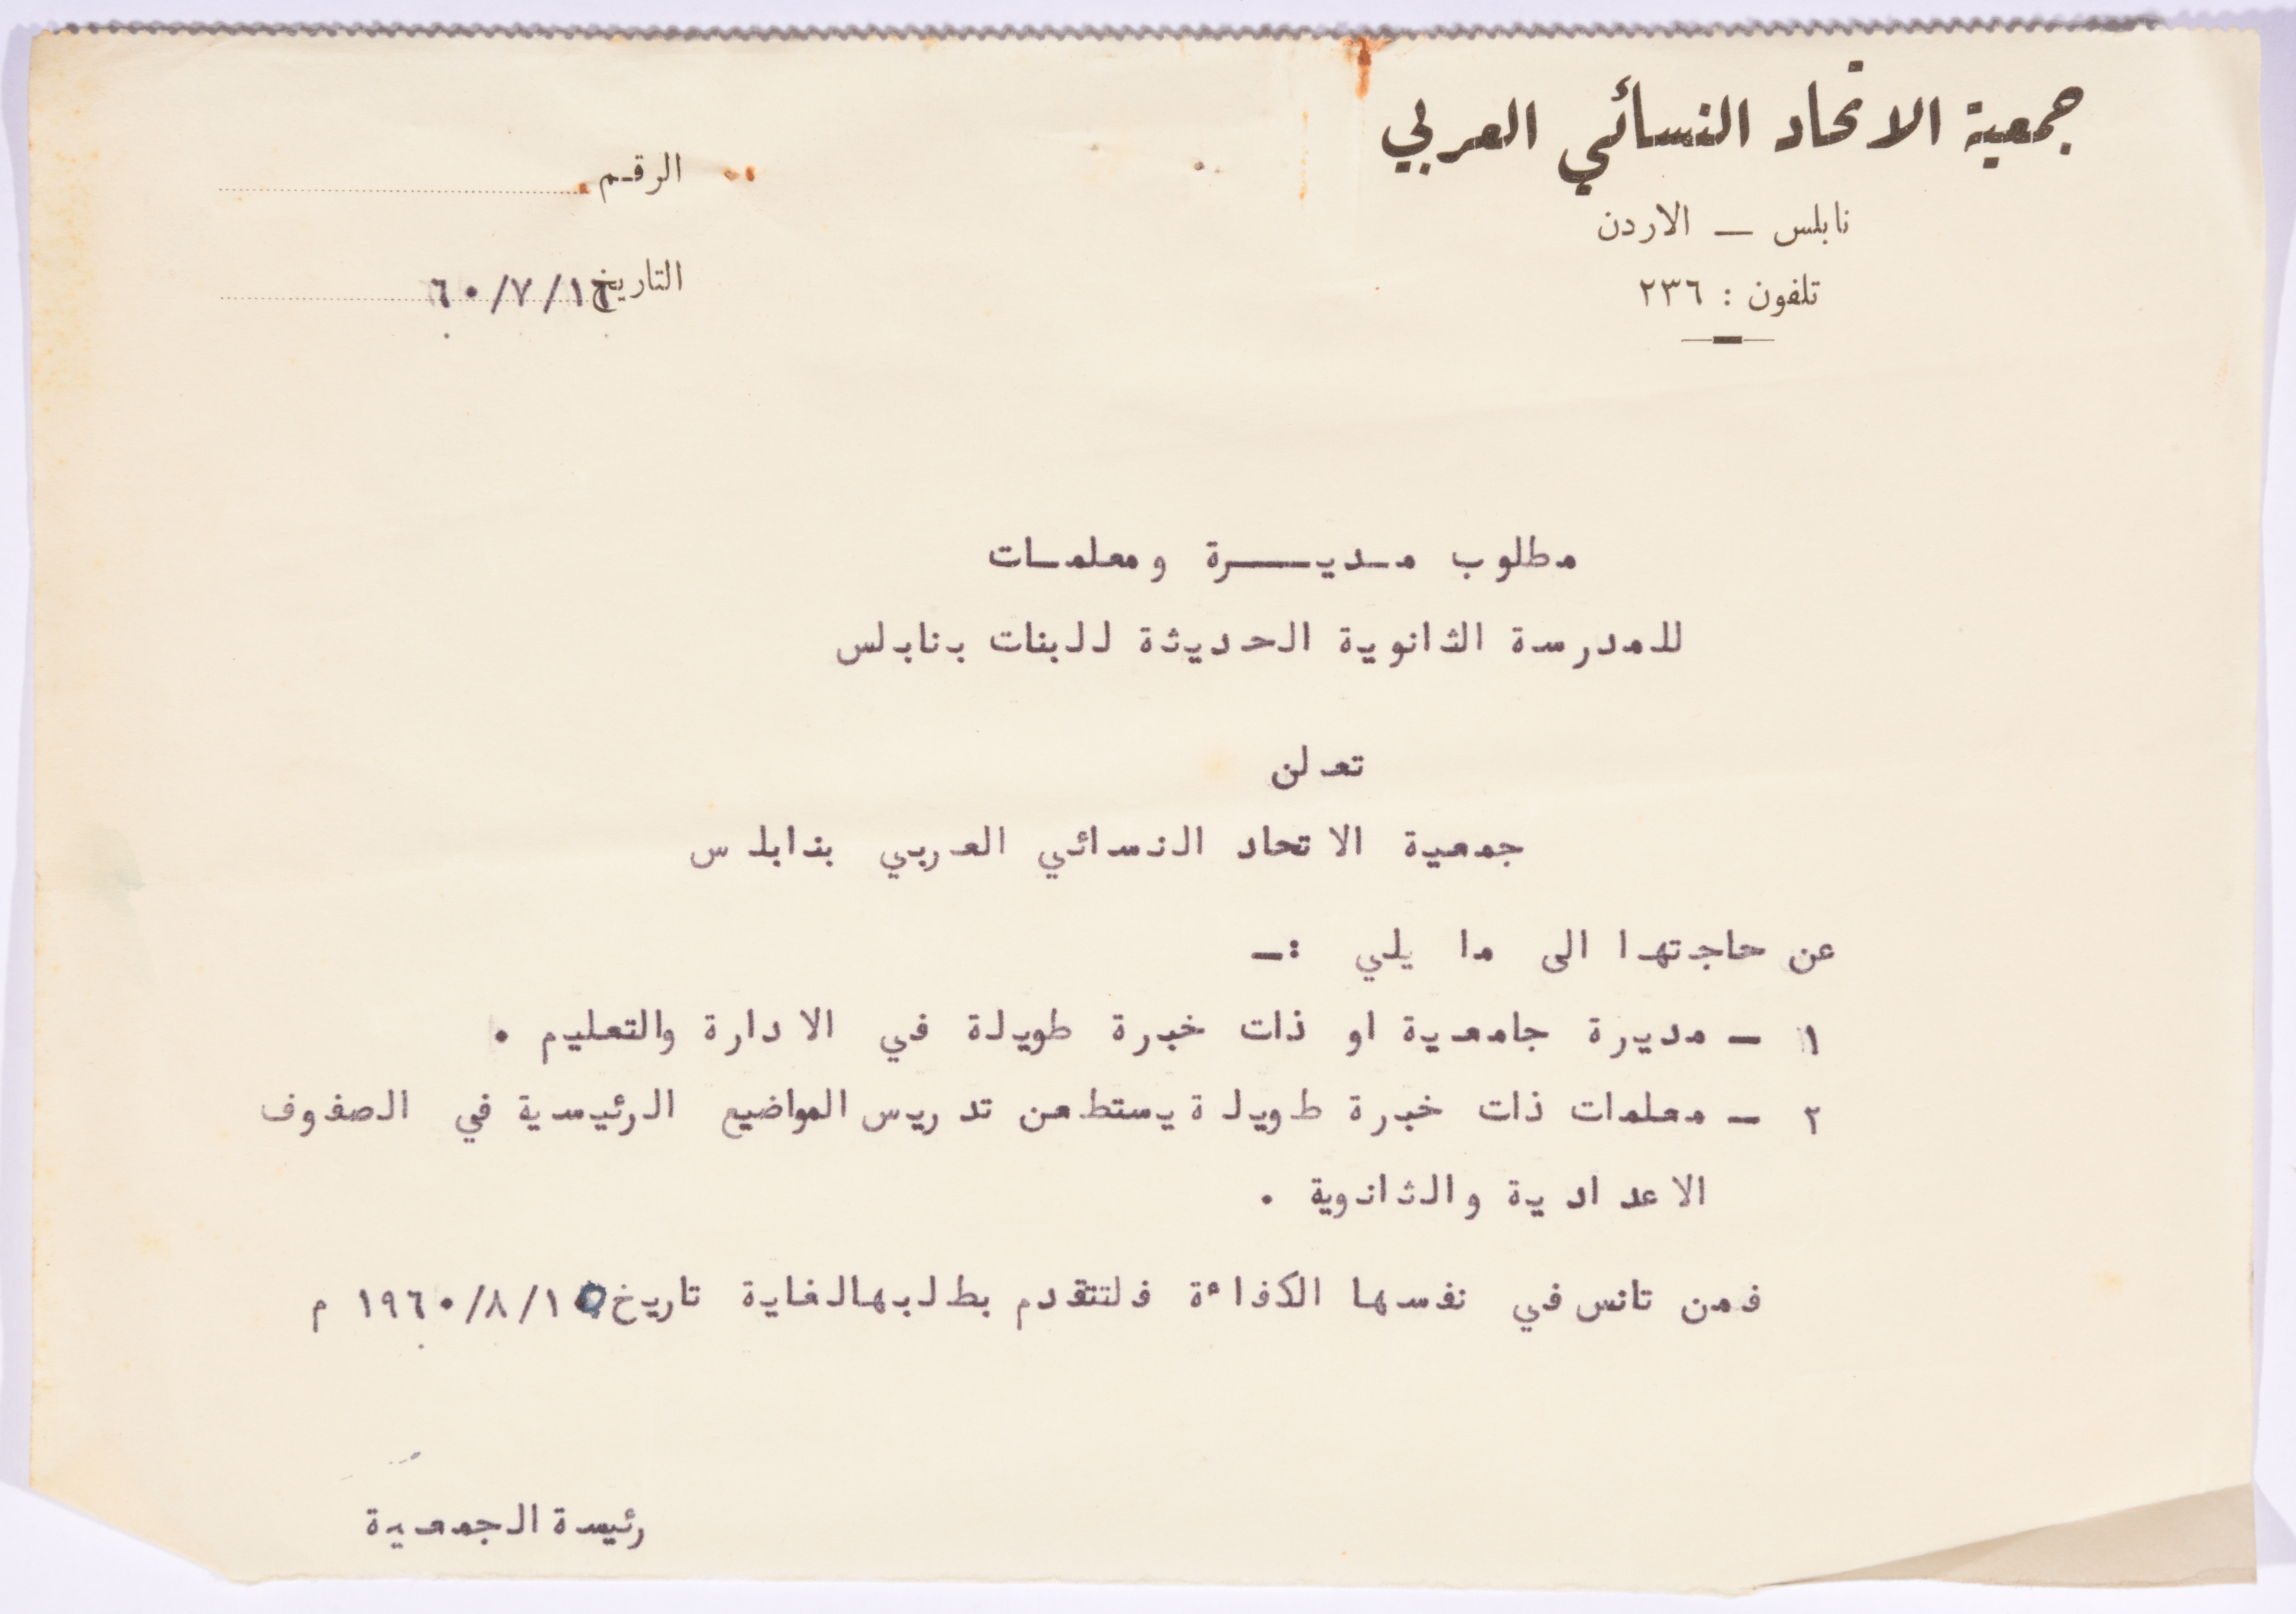 جمعية الاتحاد النسائي العربي
نابلس — الاردن
تلفون : ٢٣٦
الرقم
التاريخ ١٦/٧/٦٠
مطلوب مديرة ومعلمات
للمدرسة الثانوية الحديثة للبنات بنابلس
تعلن
جمعية الاتحاد النسائي العربي بنابلس
عن حاجتها الى ما يلي :—
١ — مديرة جامعية او ذات خبرة طويلة في الادارة والتعليم .
٢ — معلمات ذات خبرة طويلة يستطعن تدريس المواضيع الرئيسية في الصفوف
الاعدادية والثانوية .
فمن تانس في نفسها الكفاءة فلتتقدم بطلبها لغاية تاريخ ١٥/٨/١٩٦٠ م
رئيسة الجمعية